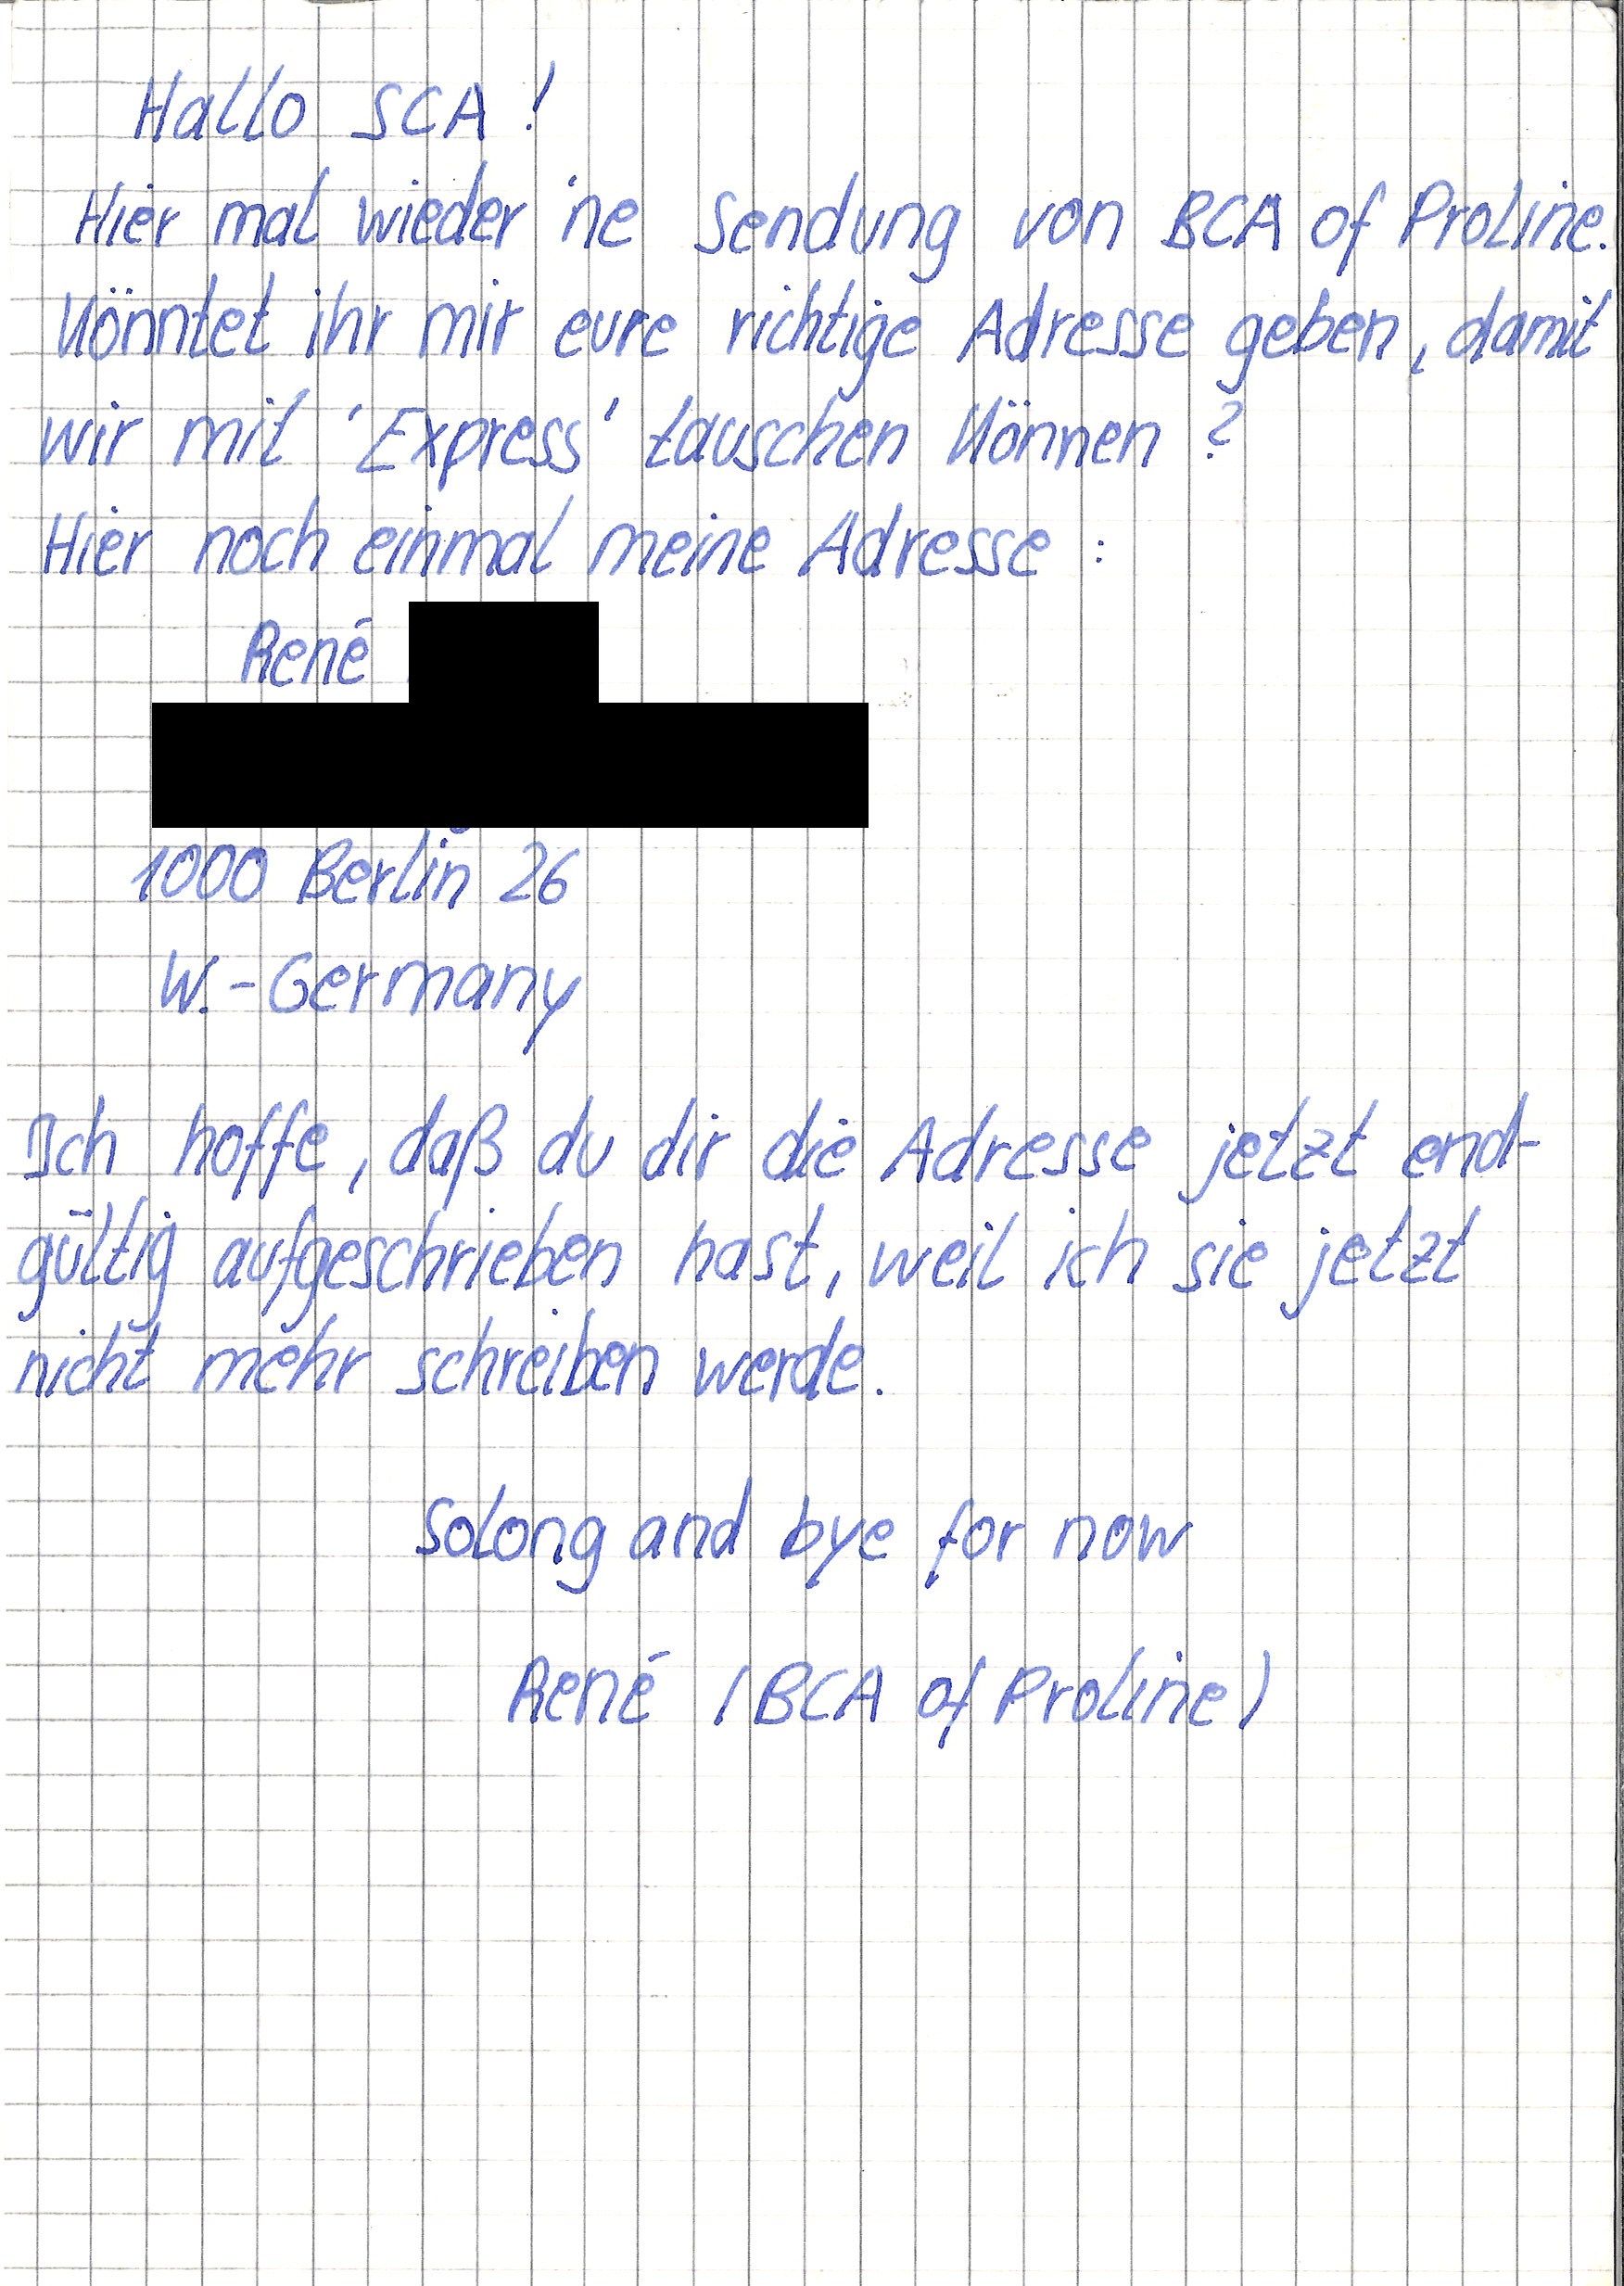 Hallo SCA!
Hier mal wieder 'ne Sendung von BCA of Proline.
Könntet ihr mir eure richtige Adresse geben, damit
wir mit 'Express' tauschen können?
Hier noch einmal meine Adresse:
René
1000 Berlin 26
W.-Germany
Ich hoffe, daß du dir die Adresse jetzt end-
gültig aufgeschrieben hast, weil ich sie jetzt
nicht mehr schreiben werde.
Solong and bye for now
René (BCA of Proline)